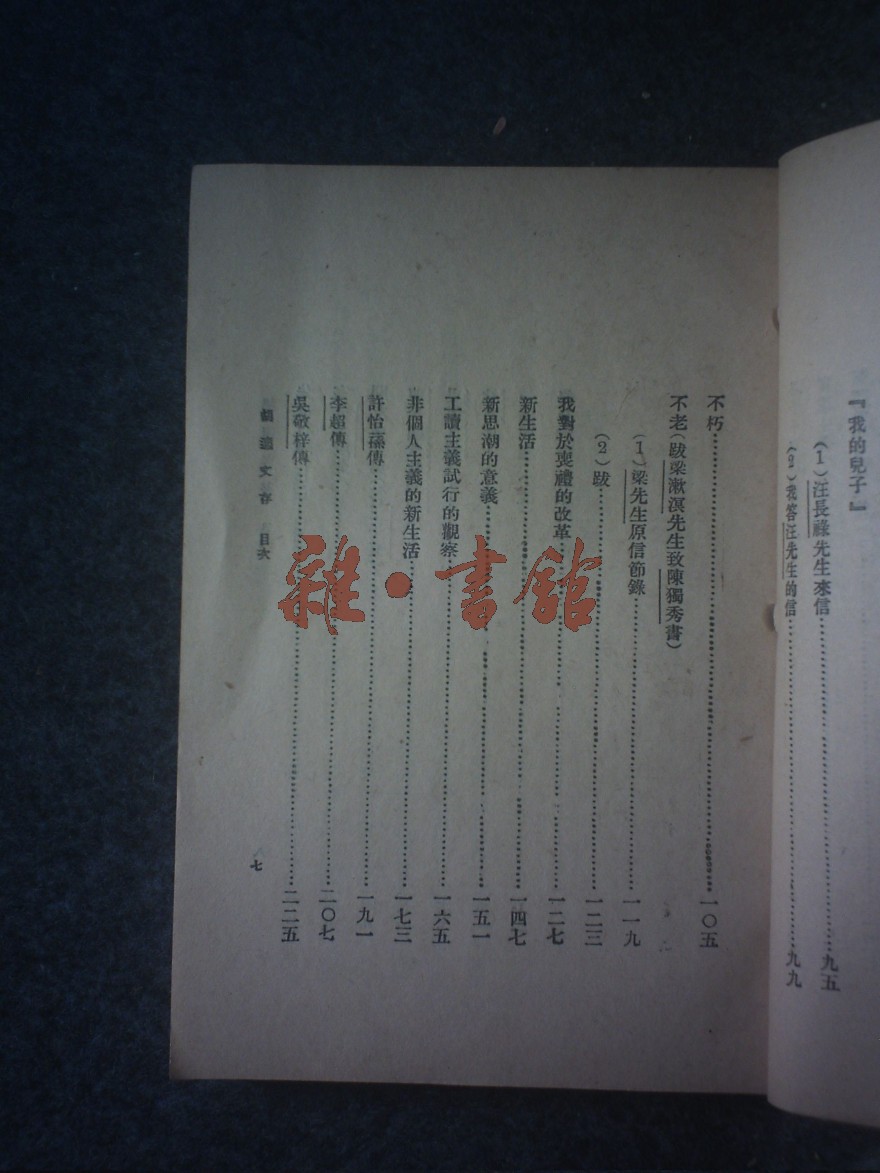 『我的兒子』
(1)汪長祿先生來信……九五
(2)我答汪先生的信……九九
不朽……一〇五
不老(跋梁漱溟先生致陳獨秀書)
(1)梁先生原信節錄……一一九
(2)跋……一二三
我對於喪禮的改革……一二七
新生活……一四七
新思潮的意義……一五一
工讀主義試行的觀察……一六五
非個人主義的新生活……一七三
許怡蓀傳……一九一
李超傳……二〇七
吳敬梓傳……二二五
胡適文存 目次
七
雜·書館